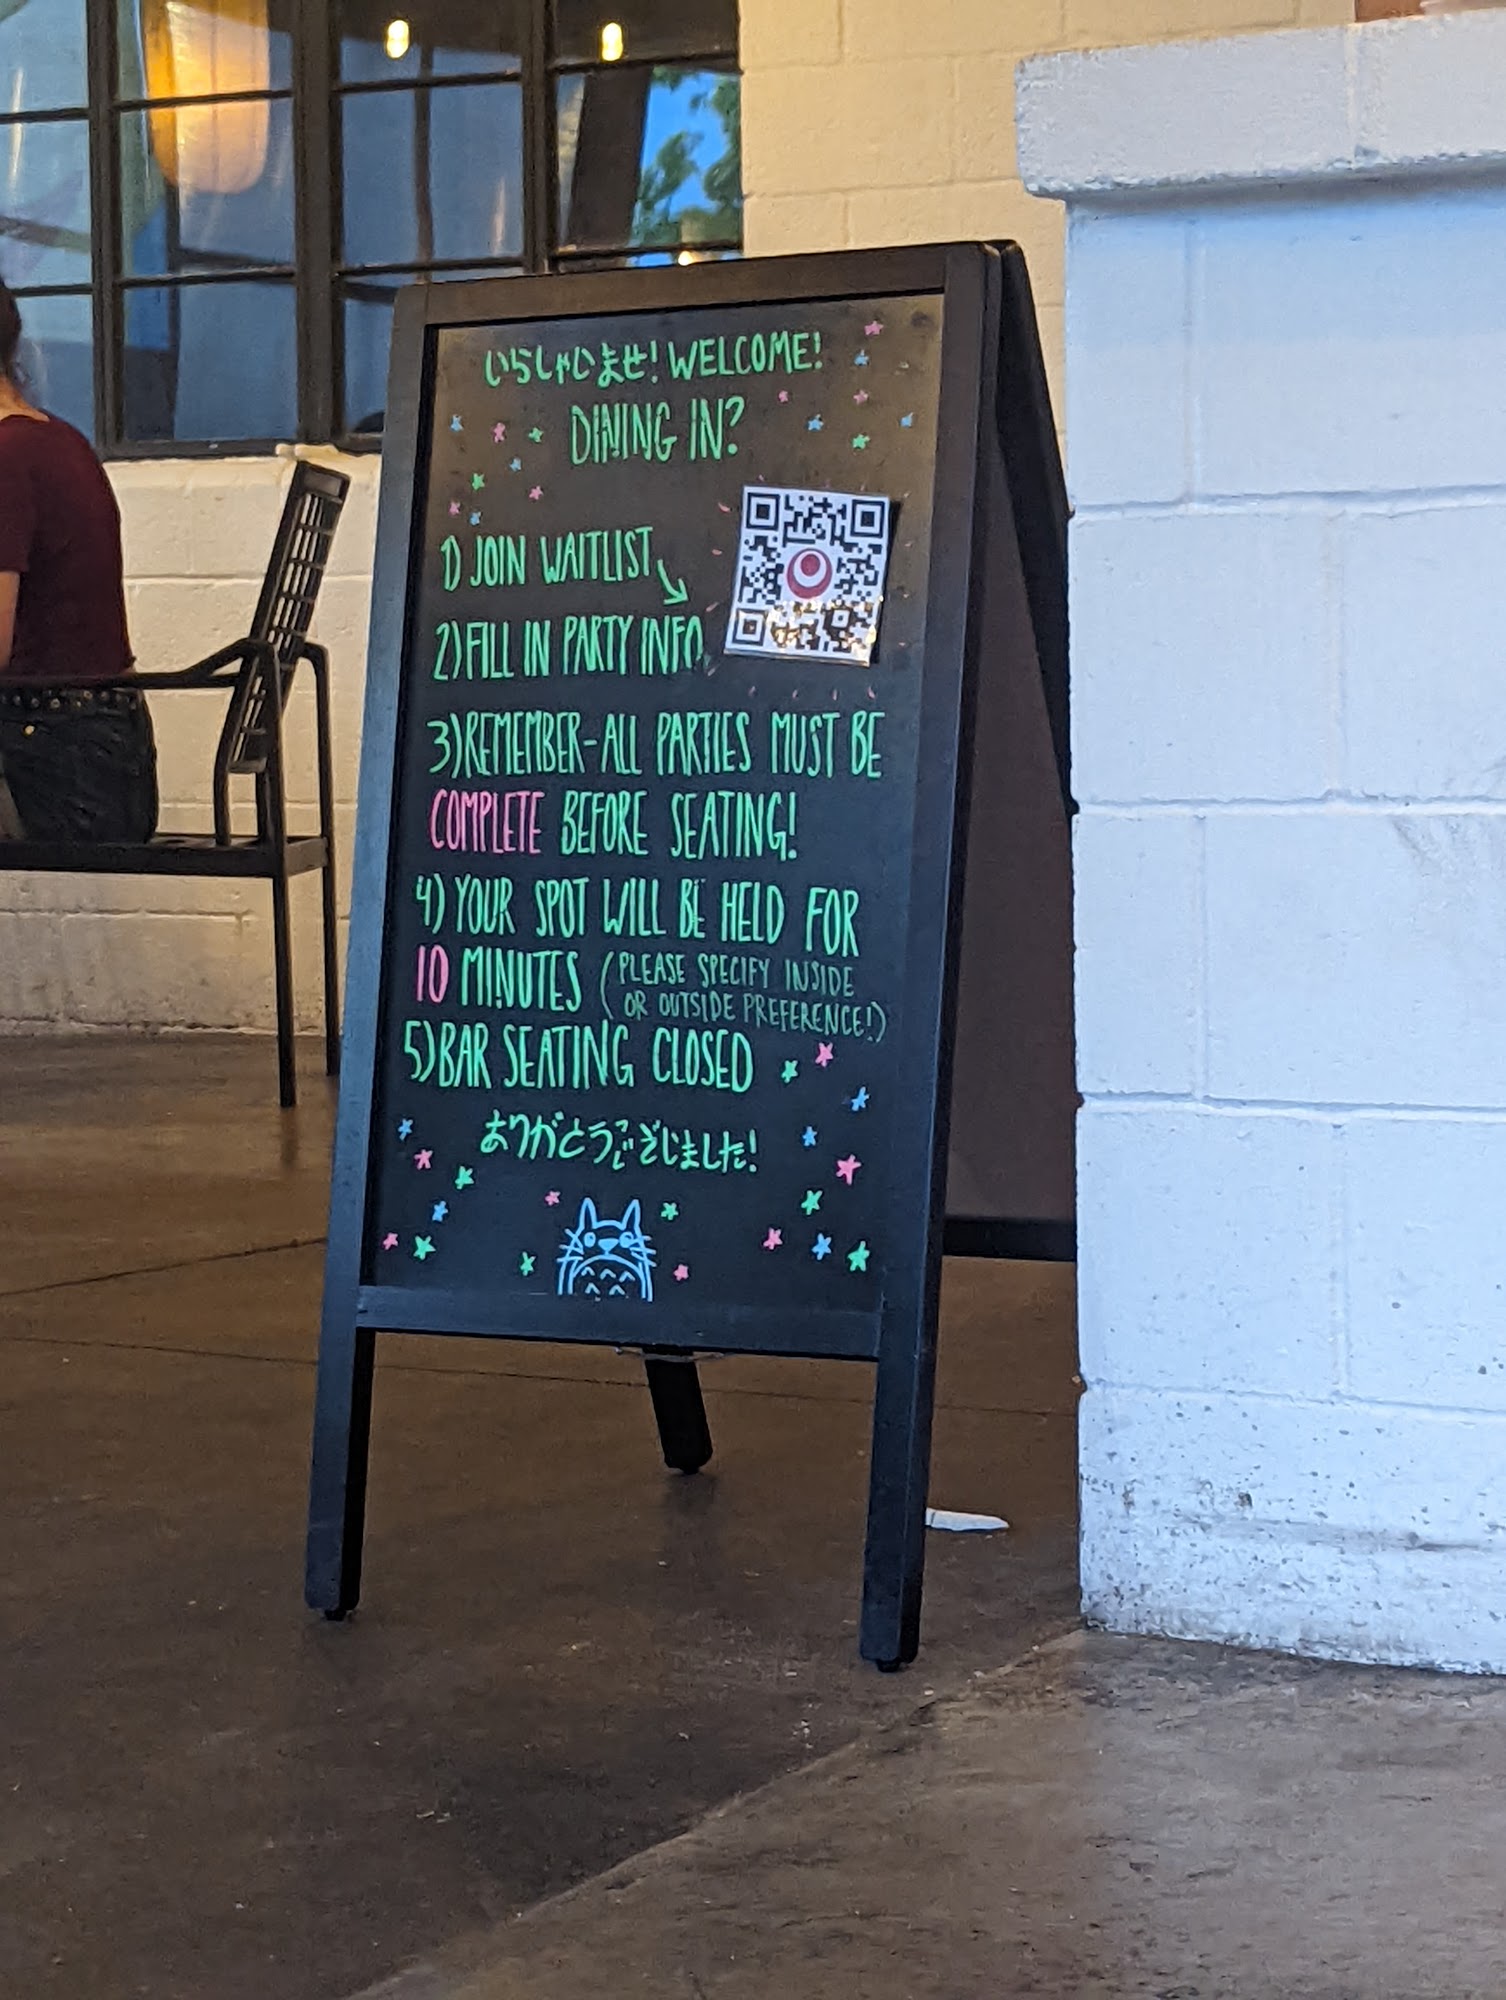 いらしゃいませ! WELCOME!
DINING IN?
1) JOIN WAITLIST
2) FILL IN PARTY INFO
3) REMEMBER-ALL PARTIES MUST BE
COMPLETE BEFORE SEATING!
4) YOUR SPOT WILL BE HELD FOR
10 MINUTES (PLEASE SPECIFY INSIDE
OR OUTSIDE PREFERENCE!)
5) BAR SEATING CLOSED
ありがとうございじました!